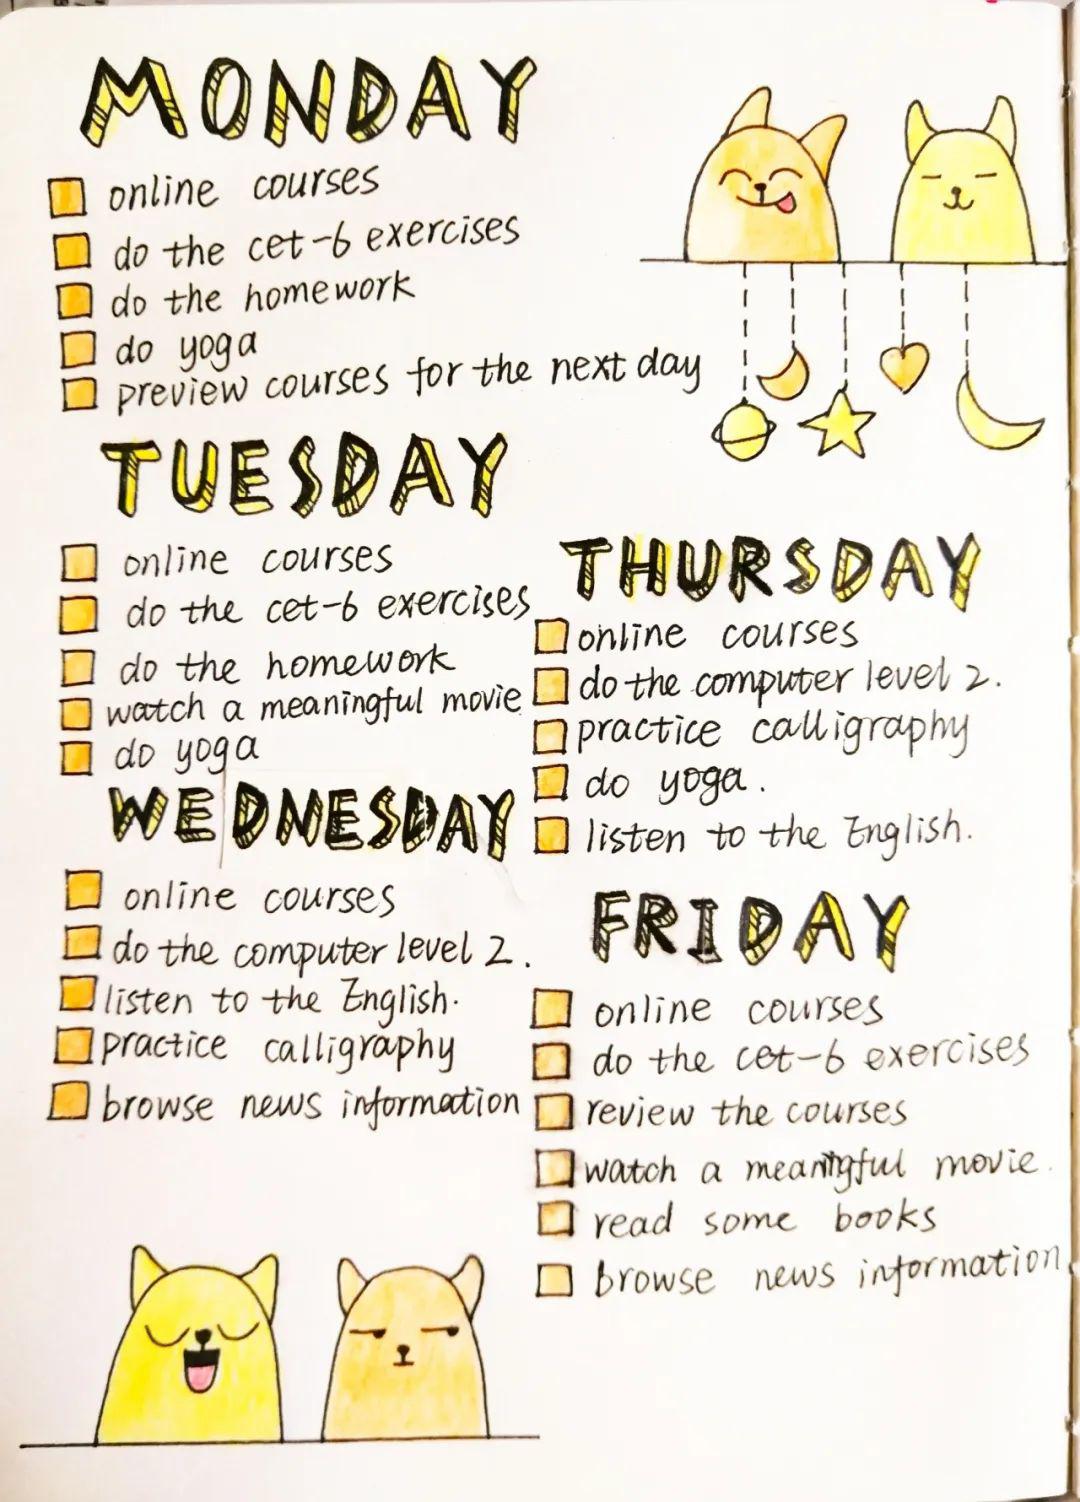 MONDAY
online courses
do the cet-6 exercises
do the homework
do yoga
preview courses for the next day
TUESDAY
online courses
do the cet-6 exercises
do the homework
watch a meaningful movie
do yoga
WEDNESDAY
online courses
do the computer level 2.
listen to the English.
practice calligraphy
browse news information
THURSDAY
online courses
do the computer level 2.
practice calligraphy
do yoga.
listen to the English.
FRIDAY
online courses
do the cet-6 exercises
review the courses
watch a meaningful movie.
read some books
browse news information